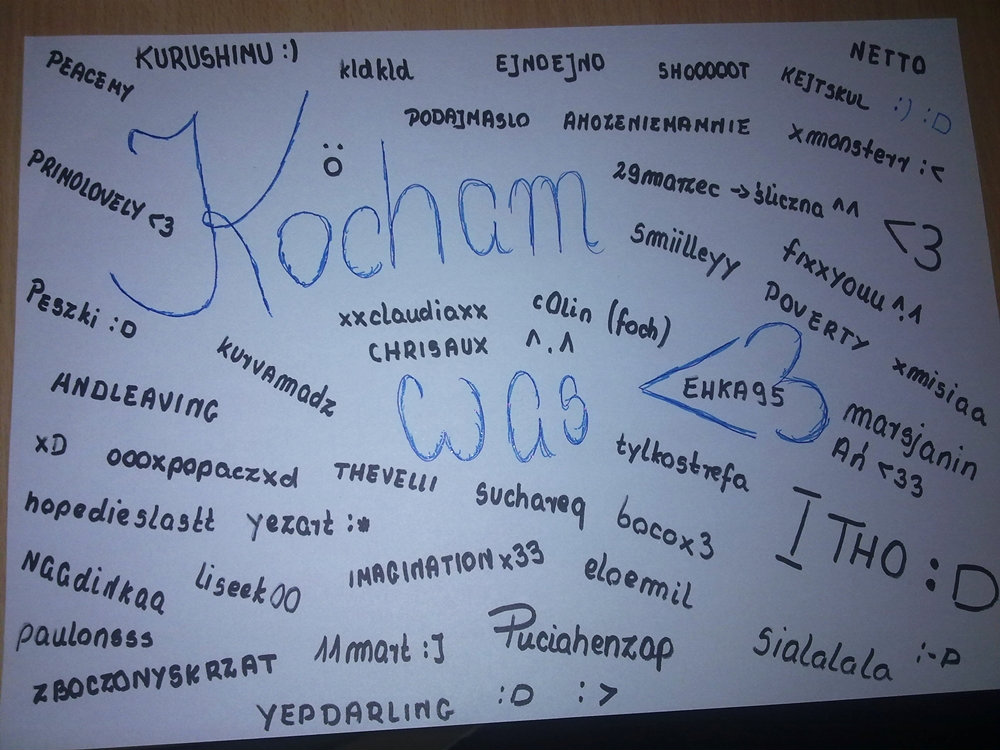 PEACEMY
KURUSHIMU :)
kldkld
EJNOEJNO
SHOOOOOT
KEJTSKUL :) :D
NETTO
PODAJMASLO
AMOZENIEMAMNIE
xmonsterr :<
PRIMOLOVELY <3
Kocham
ö
29marzec → śliczna ^^
<3
smiilleyy
fixxyouu ^.^
Peszki :D
xxclaudiaxx
cOlin (foch)
POVERTY
CHRISAUX ^.^
kurvamadz
xmisiaa
was
<3
EHKA95
ANDLEAVING
marsjanin
Ań <33
xD
oooxpopaczxd
THEVELLI
suchareq
tylkostrefa
hopedieslastt
yezart :*
bocox3
I THO :D
NGGdinkaa
liseekOO
IMAGINATIONx33
eloemil
paulonsss
11mart :]
Puciahenzap
sialalala :-P
ZBOCZONYSKRZAT
YEPDARLING :D :>